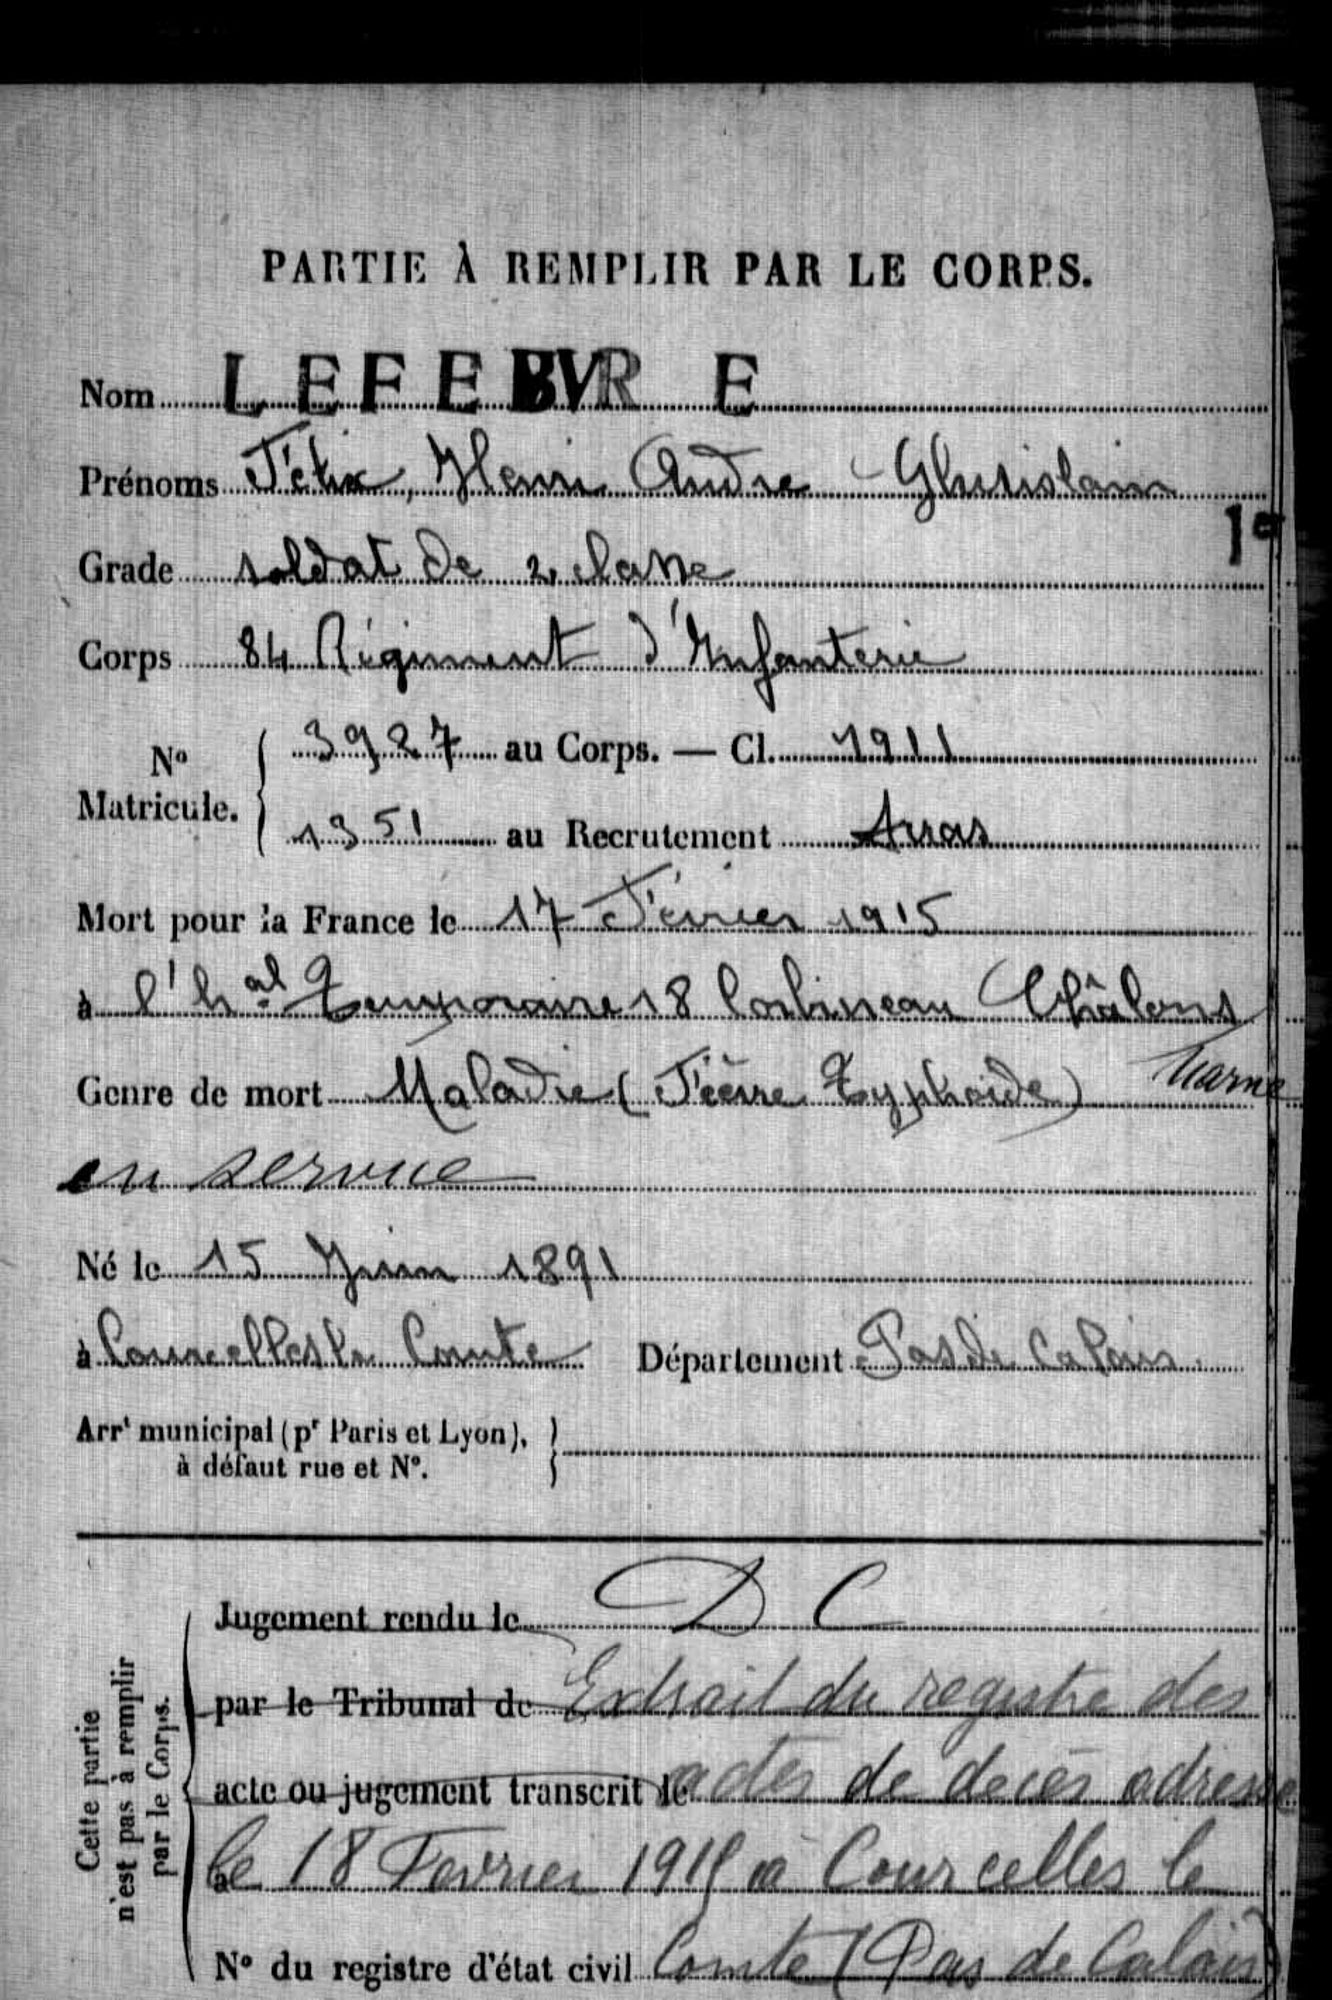 PARTIE À REMPLIR PAR LE CORPS.
Nom LEFEBVRE
Prénoms Félix, Henri André Ghislain
1e
Grade soldat de 2 classe
Corps 84 Régiment d'Infanterie
No Matricule. 3927 au Corps. — Cl. 1911
1351 au Recrutement Arras
Mort pour la France le 17 Février 1915
à l'hal Temporaire 18 Corbineau Châlons
Marne
Genre de mort Maladie (Fièvre Typhoïde)
en service
Né le 15 Juin 1891
à Courcelles le Comte Département Pas de Calais
Arrt municipal (pr Paris et Lyon),
à défaut rue et No.
Cette partie
n'est pas à remplir
par le Corps.
Jugement rendu le D C
par le Tribunal de Extrait du registre des
acte ou jugement transcrit le actes de décès adressé
le 18 Fevrier 1915 à Courcelles le
No du registre d'état civil Comte (Pas de Calais)